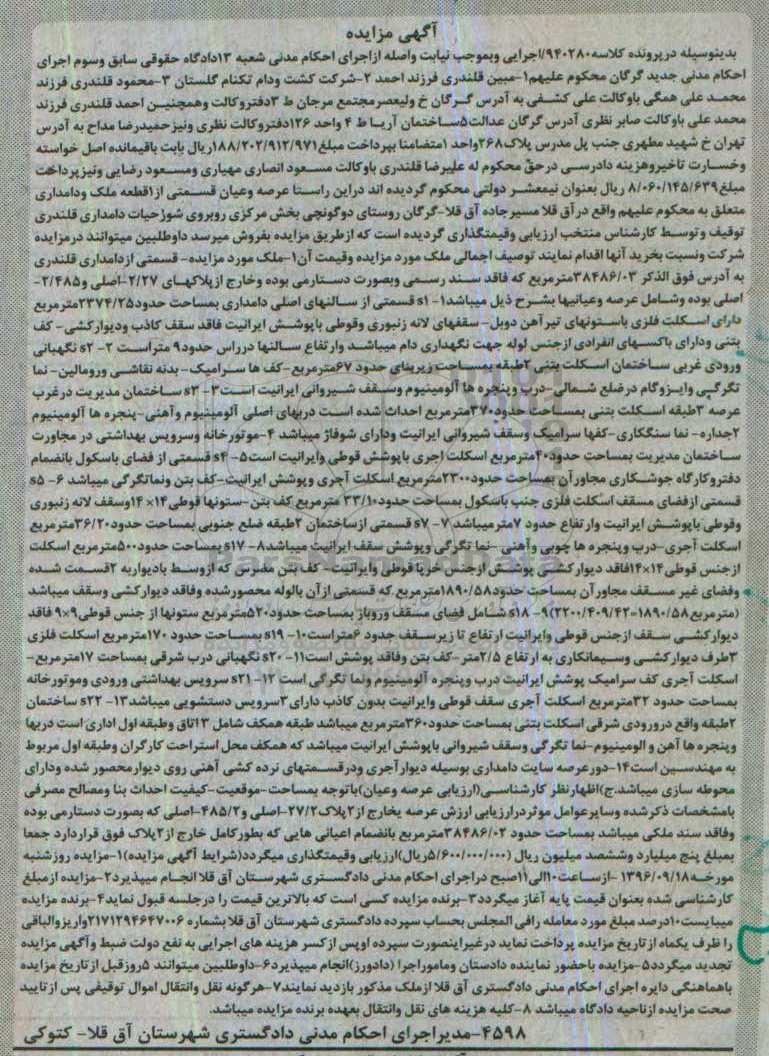 آگهی مزایده
بدینوسیله درپرونده کلاسه ۹۴۰۲۸۰/اجرایی وبموجب نیابت واصله ازاجرای احکام مدنی شعبه ۱۳دادگاه حقوقی سابق وسوم اجرای
احکام مدنی جدید گرگان محکوم علیهم۱-مبین قلندری فرزند احمد ۲-شرکت کشت ودام تکنام گلستان ۳-محمود قلندری فرزند
محمد علی همگی باوکالت علی کشفی به آدرس گرگان خ ولیعصرمجتمع مرجان ط ۳دفتروکالت وهمچنین احمد قلندری فرزند
محمد علی باوکالت صابر نظری آدرس گرگان عدالت۵ساختمان آریا ط ۴ واحد ۱۲۶دفتروکالت نظری ونیزحمیدرضا مداح به آدرس
تهران خ شهید مطهری جنب پل مدرس پلاک۲۶۸واحد ۱متضامنا بپرداخت مبلغ۱۸۸/۲۰۲/۹۱۲/۹۷۱ریال بابت باقیمانده اصل خواسته
وخسارت تاخیروهزینه دادرسی درحق محکوم له علیرضا قلندری باوکالت مسعود انصاری مهیاری ومسعود رضایی ونیزپرداخت
مبلغ۸/۰۶۰/۱۴۵/۶۳۹ ریال بعنوان نیمعشر دولتی محکوم گردیده اند دراین راستا عرصه وعیان قسمتی از۱قطعه ملک ودامداری
متعلق به محکوم علیهم واقع درآق قلا مسیرجاده آق قلا-گرگان روستای دوگونچی بخش مرکزی روبروی شوژحیات دامداری قلندری
توقیف وتوسط کارشناس منتخب ارزیابی وقیمتگذاری گردیده است که ازطریق مزایده بفروش میرسد داوطلبین میتوانند درمزایده
شرکت ونسبت بخرید آنها اقدام نمایند توصیف اجمالی ملک مورد مزایده وقیمت آن۱-ملک مورد مزایده- قسمتی ازدامداری قلندری
به آدرس فوق الذکر ۳۸۴۸۶/۰۳مترمربع که فاقد سند رسمی وبصورت دستارمی بوده وخارج ازپلاکهای ۲/۲۷-اصلی و۲/۴۸۵-
اصلی بوده وشامل عرصه وعیانیها بشرح ذیل میباشد۱- s۱ قسمتی از سالنهای اصلی دامداری بمساحت حدود۲۳۷۴/۲۵مترمربع
دارای اسکلت فلزی باستونهای تیرآهن دوبل- سقفهای لانه زنبوری وقوطی باپوشش ایرانیت فاقد سقف کاذب ودیوارکشی- کف
بتنی ودارای باکسهای انفرادی ازجنس لوله جهت نگهداری دام میباشد وارتفاع سالنها درراس حدود۹ متراست ۲- s۲ نگهبانی
ورودی غربی ساختمان اسکلت بتنی ۲طبقه بمساحت زیربنای حدود ۶۷مترمربع-کف ها سرامیک- بدنه نقاشی ورومالین- نما
تگرگی وایزوگام درضلع شمالی-درب وپنجره ها آلومینیوم وسقف شیروانی ایرانیت است۳- s۳ ساختمان مدیریت درغرب
عرصه ۳طبقه اسکلت بتنی بمساحت حدود۳۷۰مترمربع احداث شده است دربهای اصلی آلومینیوم وآهنی-پنجره ها آلومینیوم
۲جداره- نما سنگکاری-کفها سرامیک وسقف شیروانی ایرانیت ودارای شوفاژ میباشد ۴-موتورخانه وسرویس بهداشتی در مجاورت
ساختمان مدیریت بمساحت حدود۴۰مترمربع اسکلت اجری باپوشش قوطی وایرانیت است۵- s۴ قسمتی از فضای باسکول بانضمام
دفتروکارگاه جوشکاری مجاور آن بمساحت حدود۲۳۰۰مترمربع اسکلت آجری وپوشش ایرانیت-کف بتن ونماتگرگی میباشد ۶- s۵
قسمتی ازفضای مسقف اسکلت فلزی جنب باسکول بمساحت حدود۳۳/۱۰ مترمربع کف بتن-ستونها قوطی۱۴× ۱۴وسقف لانه زنبوری
وقوطی باپوشش ایرانیت وارتفاع حدود ۷مترمیباشد ۷- s۷ قسمتی ازساختمان ۲طبقه ضلع جنوبی بمساحت حدود۳۶/۲۰مترمربع
اسکلت آجری-درب وپنجره ها چوبی وآهنی -نما تگرگی وپوشش سقف ایرانیت میباشد۸- s۱۷ بمساحت حدود۵۰۰مترمربع اسکلت
ازجنس قوطی۱۴×۱۴فاقد دیوارکشی پوشش ازجنس خرپا قوطی وایرانیت- کف بتن مضرس که ازوسط بادیواربه ۲قسمت شده
وفضای غیر مسقف مجاورآن بمساحت حدود۱۸۹۰/۵۸مترمربع که قسمتی ازآن بالوله محصورشده وفاقد دیوارکشی وسقف میباشد
(مترمربع۱۸۹۰/۵۸=۲۲۰۰/۴۰۹/۴۲)۹- s۱۸ شامل فضای مسقف وروباز بمساحت حدود۵۲۰مترمربع ستونها از جنس قوطی۹×۹ فاقد
دیوارکشی سقف ازجنس قوطی وایرانیت ارتفاع تا زیرسقف حدود ۶متراست۱۰- s۱۹ بمساحت حدود ۱۷۰مترمربع اسکلت فلزی
۳طرف دیوارکشی وسیمانکاری به ارتفاع ۲/۵متر-کف بتن وفاقد پوشش است۱۱- s۲۰ نگهبانی درب شرقی بمساحت ۱۷مترمربع-
اسکلت آجری کف سرامیک پوشش ایرانیت درب وپنجره آلومینیوم ونما تگرگی است ۱۲- s۲۱ سرویس بهداشتی ورودی وموتورخانه
بمساحت حدود ۳۲مترمربع اسکلت آجری سقف قوطی وایرانیت بدون کاذب دارای۳سرویس دستشویی میباشد۱۳- s۲۲ ساختمان
۲طبقه واقع درورودی شرقی اسکلت بتنی بمساحت حدود۳۶۰مترمربع میباشد طبقه همکف شامل ۱۳اتاق وطبقه اول اداری است دربها
وپنجره ها آهن و الومینیوم-نما تگرگی وسقف شیروانی باپوشش ایرانیت میباشد که همکف محل استراحت کارگران وطبقه اول مربوط
به مهندسین است۱۴-دورعرصه سایت دامداری بوسیله دیوارآجری ودرقسمتهای نرده کشی آهنی روی دیوارمحصور شده ودارای
محوطه سازی میباشد.ج)اظهارنظر کارشناسی(ارزیابی عرصه وعیان)باتوجه بمساحت-موقعیت-کیفیت احداث بنا ومصالح مصرفی
بامشخصات ذکرشده وسایرعوامل موثردرارزیابی ارزش عرصه یخارج از۲پلاک۲۷/۲-اصلی و۴۸۵/۲-اصلی که بصورت دستارمی بوده
وفاقد سند ملکی میباشد بمساحت حدود ۳۸۴۸۶/۰۲مترمربع بانضمام اعیانی هایی که بطورکامل خارج از۲پلاک فوق قراردارد جمعا
بمبلغ پنج میلیارد وششصد میلیون ریال (۵/۶۰۰/۰۰۰/۰۰۰ریال)ارزیابی وقیمتگذاری میگردد(شرایط آگهی مزایده)۱-مزایده روزشنبه
مورخه۱۳۹۶/۰۹/۱۸ -ازساعت۱۰الی۱۱صبح دراجرای احکام مدنی دادگستری شهرستان آق قلا انجام میپذیرد۲-مزایده ازمبلغ
کارشناسی شده بعنوان قیمت پایه آغاز میگردد۳-برنده مزایده کسی است که بالاترین قیمت را درجلسه قبول نماید۴-برنده مزایده
میبایست۱۰درصد مبلغ مورد معامله رافی المجلس بحساب سپرده دادگستری شهرستان آق قلا بشماره ۲۱۷۱۲۹۴۶۴۷۰۰۶واریزوالباقی
را ظرف یکماه ازتاریخ مزایده پرداخت نماید درغیراینصورت سپرده اوپس ازکسر هزینه های اجرایی به نفع دولت ضبط وآگهی مزایده
تجدید میگردد۵-مزایده باحضور نماینده دادستان وماموراجرا (دادورز)انجام میپذیرد۶-داوطلبین میتوانند ۵روزقبل ازتاریخ مزایده
باهماهنگی دایره اجرای احکام مدنی دادگستری آق قلا ازملک مذکور بازدید نمایند۷-هرگونه نقل وانتقال اموال توقیفی پس ازتایید
صحت مزایده ازناحیه دادگاه میباشد ۸-کلیه هزینه های نقل وانتقال بعهده برنده مزایده میباشد.
۴۵۹۸-مدیراجرای احکام مدنی دادگستری شهرستان آق قلا- کتوکی